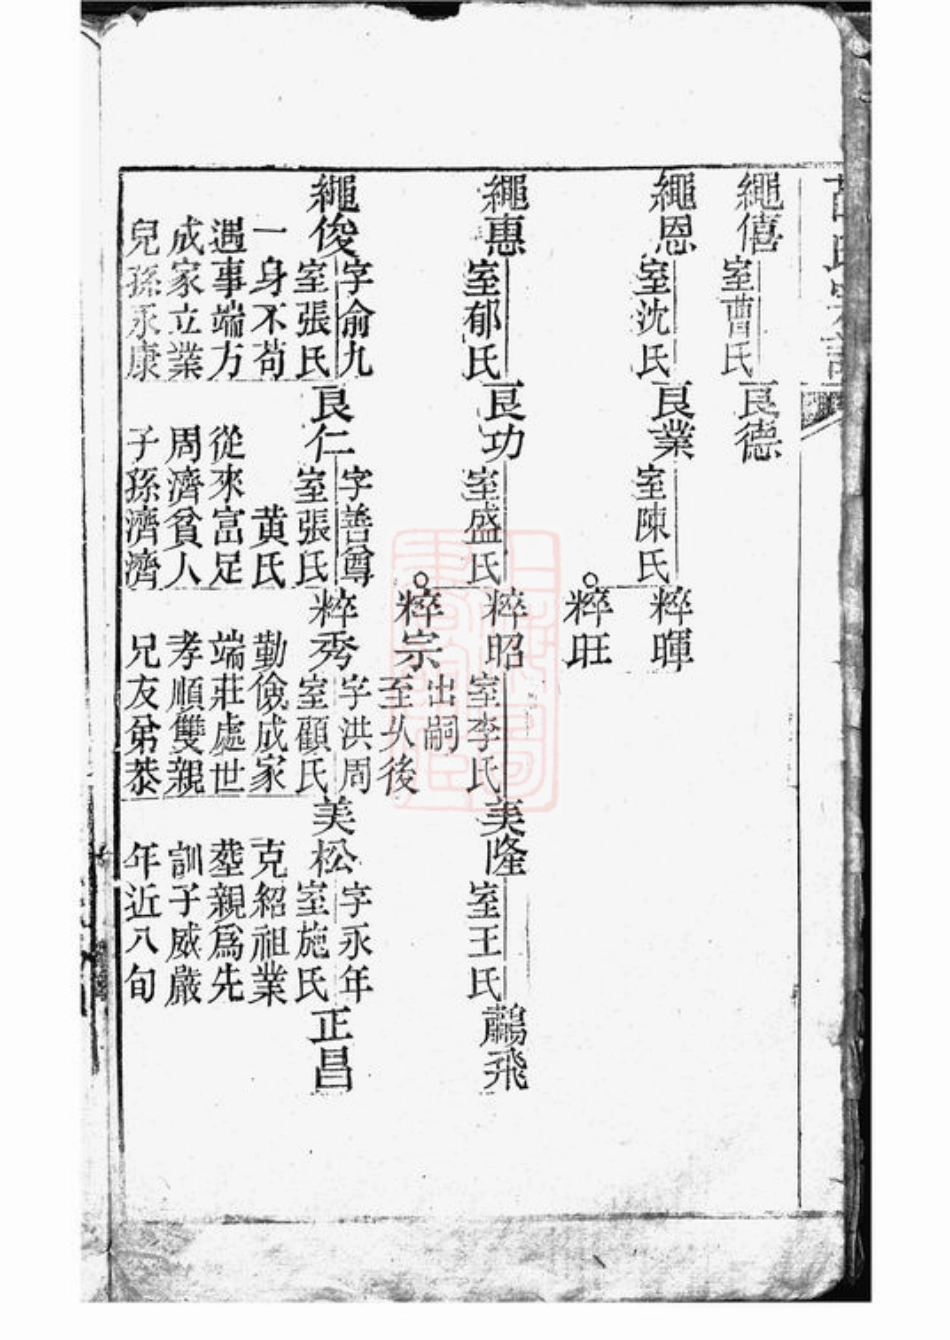 繩僖 室曹氏 良德
繩恩 室沈氏 良業 室陳氏 粹暉
粹旺
繩惠 室郁氏 良功 室盛氏 粹昭 室李氏 美隆 室王氏 鸝飛
粹宗 出嗣
至从後
繩俊 字俞九 良仁 字善尊 粹秀 字洪周 美松 字永年 正昌
室張氏 室張氏 室顧氏 室施氏
一身不苟 黄氏 勤儉成家 克紹祖業
遇事端方 從來富足 端莊處世 塟親爲先
成家立業 周濟貧人 孝順雙親 訓子威嚴
兒孫永康 子孫濟濟 兄友弟恭 年近八旬